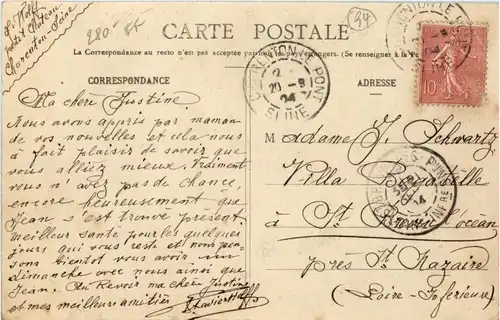 petit Château
Charenton-Seine
280
94
CARTE POSTALE
La Correspondance au recto n'est pas acceptée par
(Se renseigner à la
CORRESPONDANCE
ADRESSE
CHARENTON LE PONT
20 - 8
SEINE
10
Ma chère Justine.
Nous avons appris par maman
de vos nouvelles et cela nous
à fait plaisir de savoir que
vous alliez mieux. Vraiment
vous n'avez pas de chance,
encore heureusement que
Jean s'est trouvé présent.
Meilleur santé pour les quelques
jours qui vous reste et nous
bientôt vous avoir un
dimanche avec nous ainsi que
Jean. Au Revoir ma chère Justine
et mes meilleures amitiés
Madame J. Schwartz
Villa
à St
l'océan
près St Nazaire
(Loire-Inférieure)